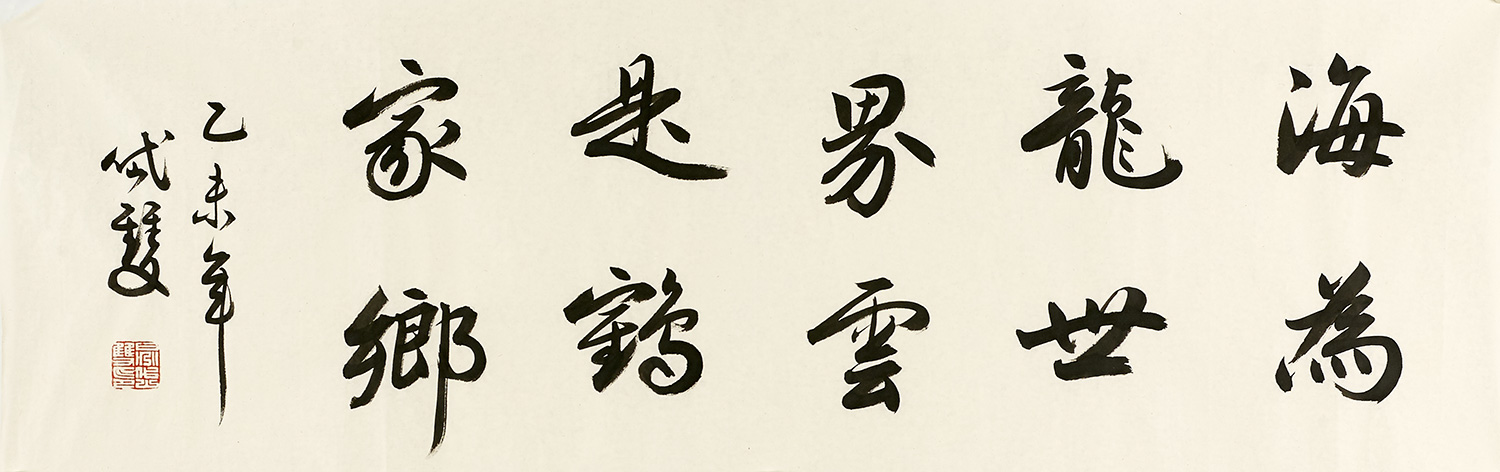 海為
龍世
界雲
是鶴
家鄉
乙未年